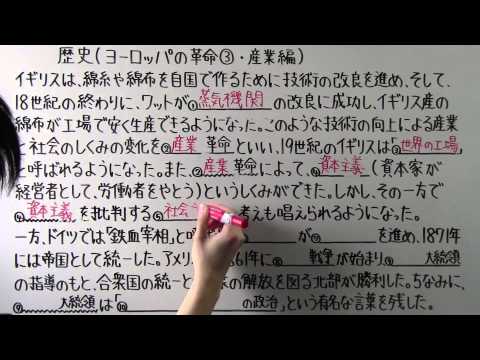 歴史(ヨーロッパの革命③・産業編)
イギリスは、綿糸や綿布を自国で作るために技術の改良を進め、そして、
18世紀の終わりに、ワットが①蒸気機関の改良に成功し、イギリス産の
綿布が工場で安く生産できるようになった。このような技術の向上による産業
と社会のしくみの変化を②産業革命といい、19世紀のイギリスは「③世界の工場」
と呼ばれるようになった。また、②産業革命によって、④資本主義(資本家が
経営者として、労働者をやとう)というしくみができた。しかし、その一方で
④資本主義を批判する⑤社会 考えも唱えられるようになった。
一方、ドイツでは「鉄血宰相」と が を進め、1871年
には帝国として統一した。アメリ 61年に 戦争が始まり、 大統領
の指導のもと、合衆国の統一と の解放を図る北部が勝利した。ちなみに、
⑨ 大統領は「 の政治」という有名な言葉を残した。